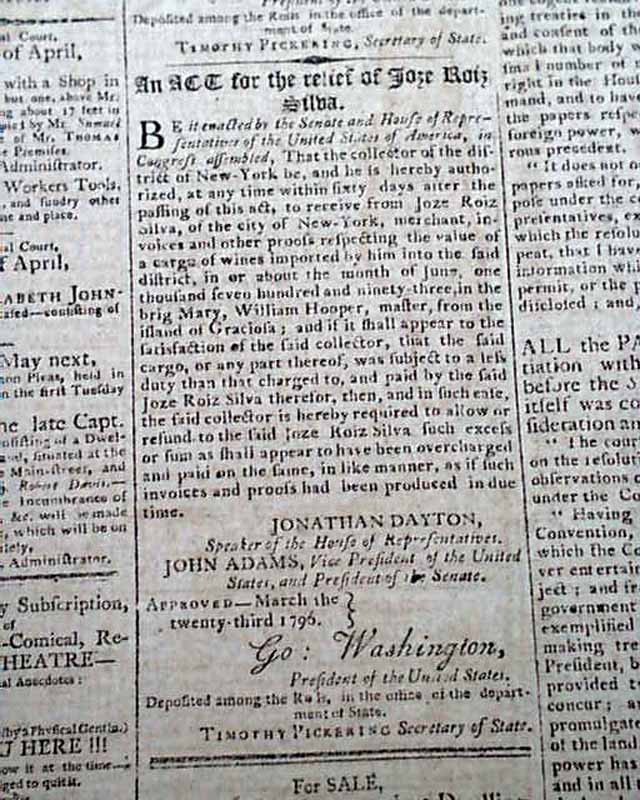 President of the United States.
Deposited among the Rolls in the office of the depart-
ment of State.
TIMOTHY PICKERING, Secretary of State.
An ACT for the relief of Joze Roiz
Silva.
BE it enacted by the Senate and House of Repre-
sentatives of the United States of America, in
Congress assembled, That the collector of the dis-
trict of New-York be, and he is hereby autho-
rized, at any time within sixty days after the
passing of this act, to receive from Joze Roiz
Silva, of the city of New-York, merchant, in-
voices and other proofs respecting the value of
a cargo of wines imported by him into the said
district, in or about the month of June, one
thousand seven hundred and ninety-three, in the
brig Mary, William Hooper, master, from the
island of Graciosa; and if it shall appear to the
satisfaction of the said collector, that the said
cargo, or any part thereof, was subject to a less
duty than that charged to, and paid by the said
Joze Roiz Silva therefor, then, and in such case,
the said collector is hereby required to allow or
refund to the said Joze Roiz Silva such excess
or sum as shall appear to have been overcharged
and paid on the same, in like manner, as if such
invoices and proofs had been produced in due
time.
JONATHAN DAYTON,
Speaker of the House of Representatives.
JOHN ADAMS, Vice President of the United
States, and President of the Senate.
APPROVED—March the
twenty-third 1796.
Go: Washington,
President of the United States.
Deposited among the Rolls, in the office of the depart-
ment of State.
TIMOTHY PICKERING Secretary of State.
For SALE,
al Court,
of April,
with a Shop in
but one, above Mr.
ng about 17 feet in
of Mr. THOMAS
Premises.
Administrator.
Workers Tools,
and sundry other
me and place.
al Court,
f April,
ABETH JOHN-
ased—consisting of
May next,
on Pleas, held in
n the first Tuesday
he late Capt.
onsisting of a Dwel-
and, situated at the
Main-street, and
Robert Davis.—
e Incumbrance of
&c. will be made
, which will be on
ately,
Administrator.
y Subscription,
of
-Comical, Re-
HEATRE—
al Anecdotes:
lby's Physical Gentm.)
T HERE !!!
ow it at the time—
ged to quit it.
ing treaties in the
and consent of the
which that body
small number of
right in the Hou
mand, and to have
the papers resp
foreign power, w
rous precedent.
"It does not
papers asked for
pose under the c
presentatives, ex
which the resolu
peat, that I have
information whi
permit, or the p
disclosed; and
ALL the PA
tiation with
before the S
itself was co
sideration an
"The cour
on the resoluti
observations
under the Co
"Having
Convention,
which the Co
ver entertain
ject; and it
government
exemplified
making trea
President, b
provided t
concur; a
promulgate
of the land
power has
and in all